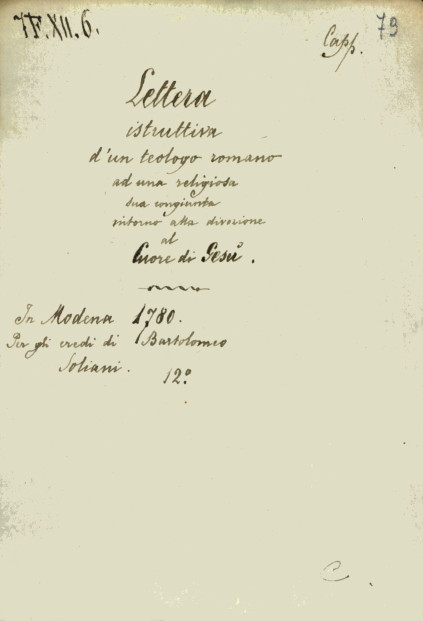 7F.XII.6.
79
Capp.
Lettera
istruttiva
d'un teologo romano
ad una religiosa
sua congiunta
intorno alla divozione
al
Cuore di Gesù.
In Modena 1780.
Per gli eredi di Bartolomeo
Soliani.
12º
C.